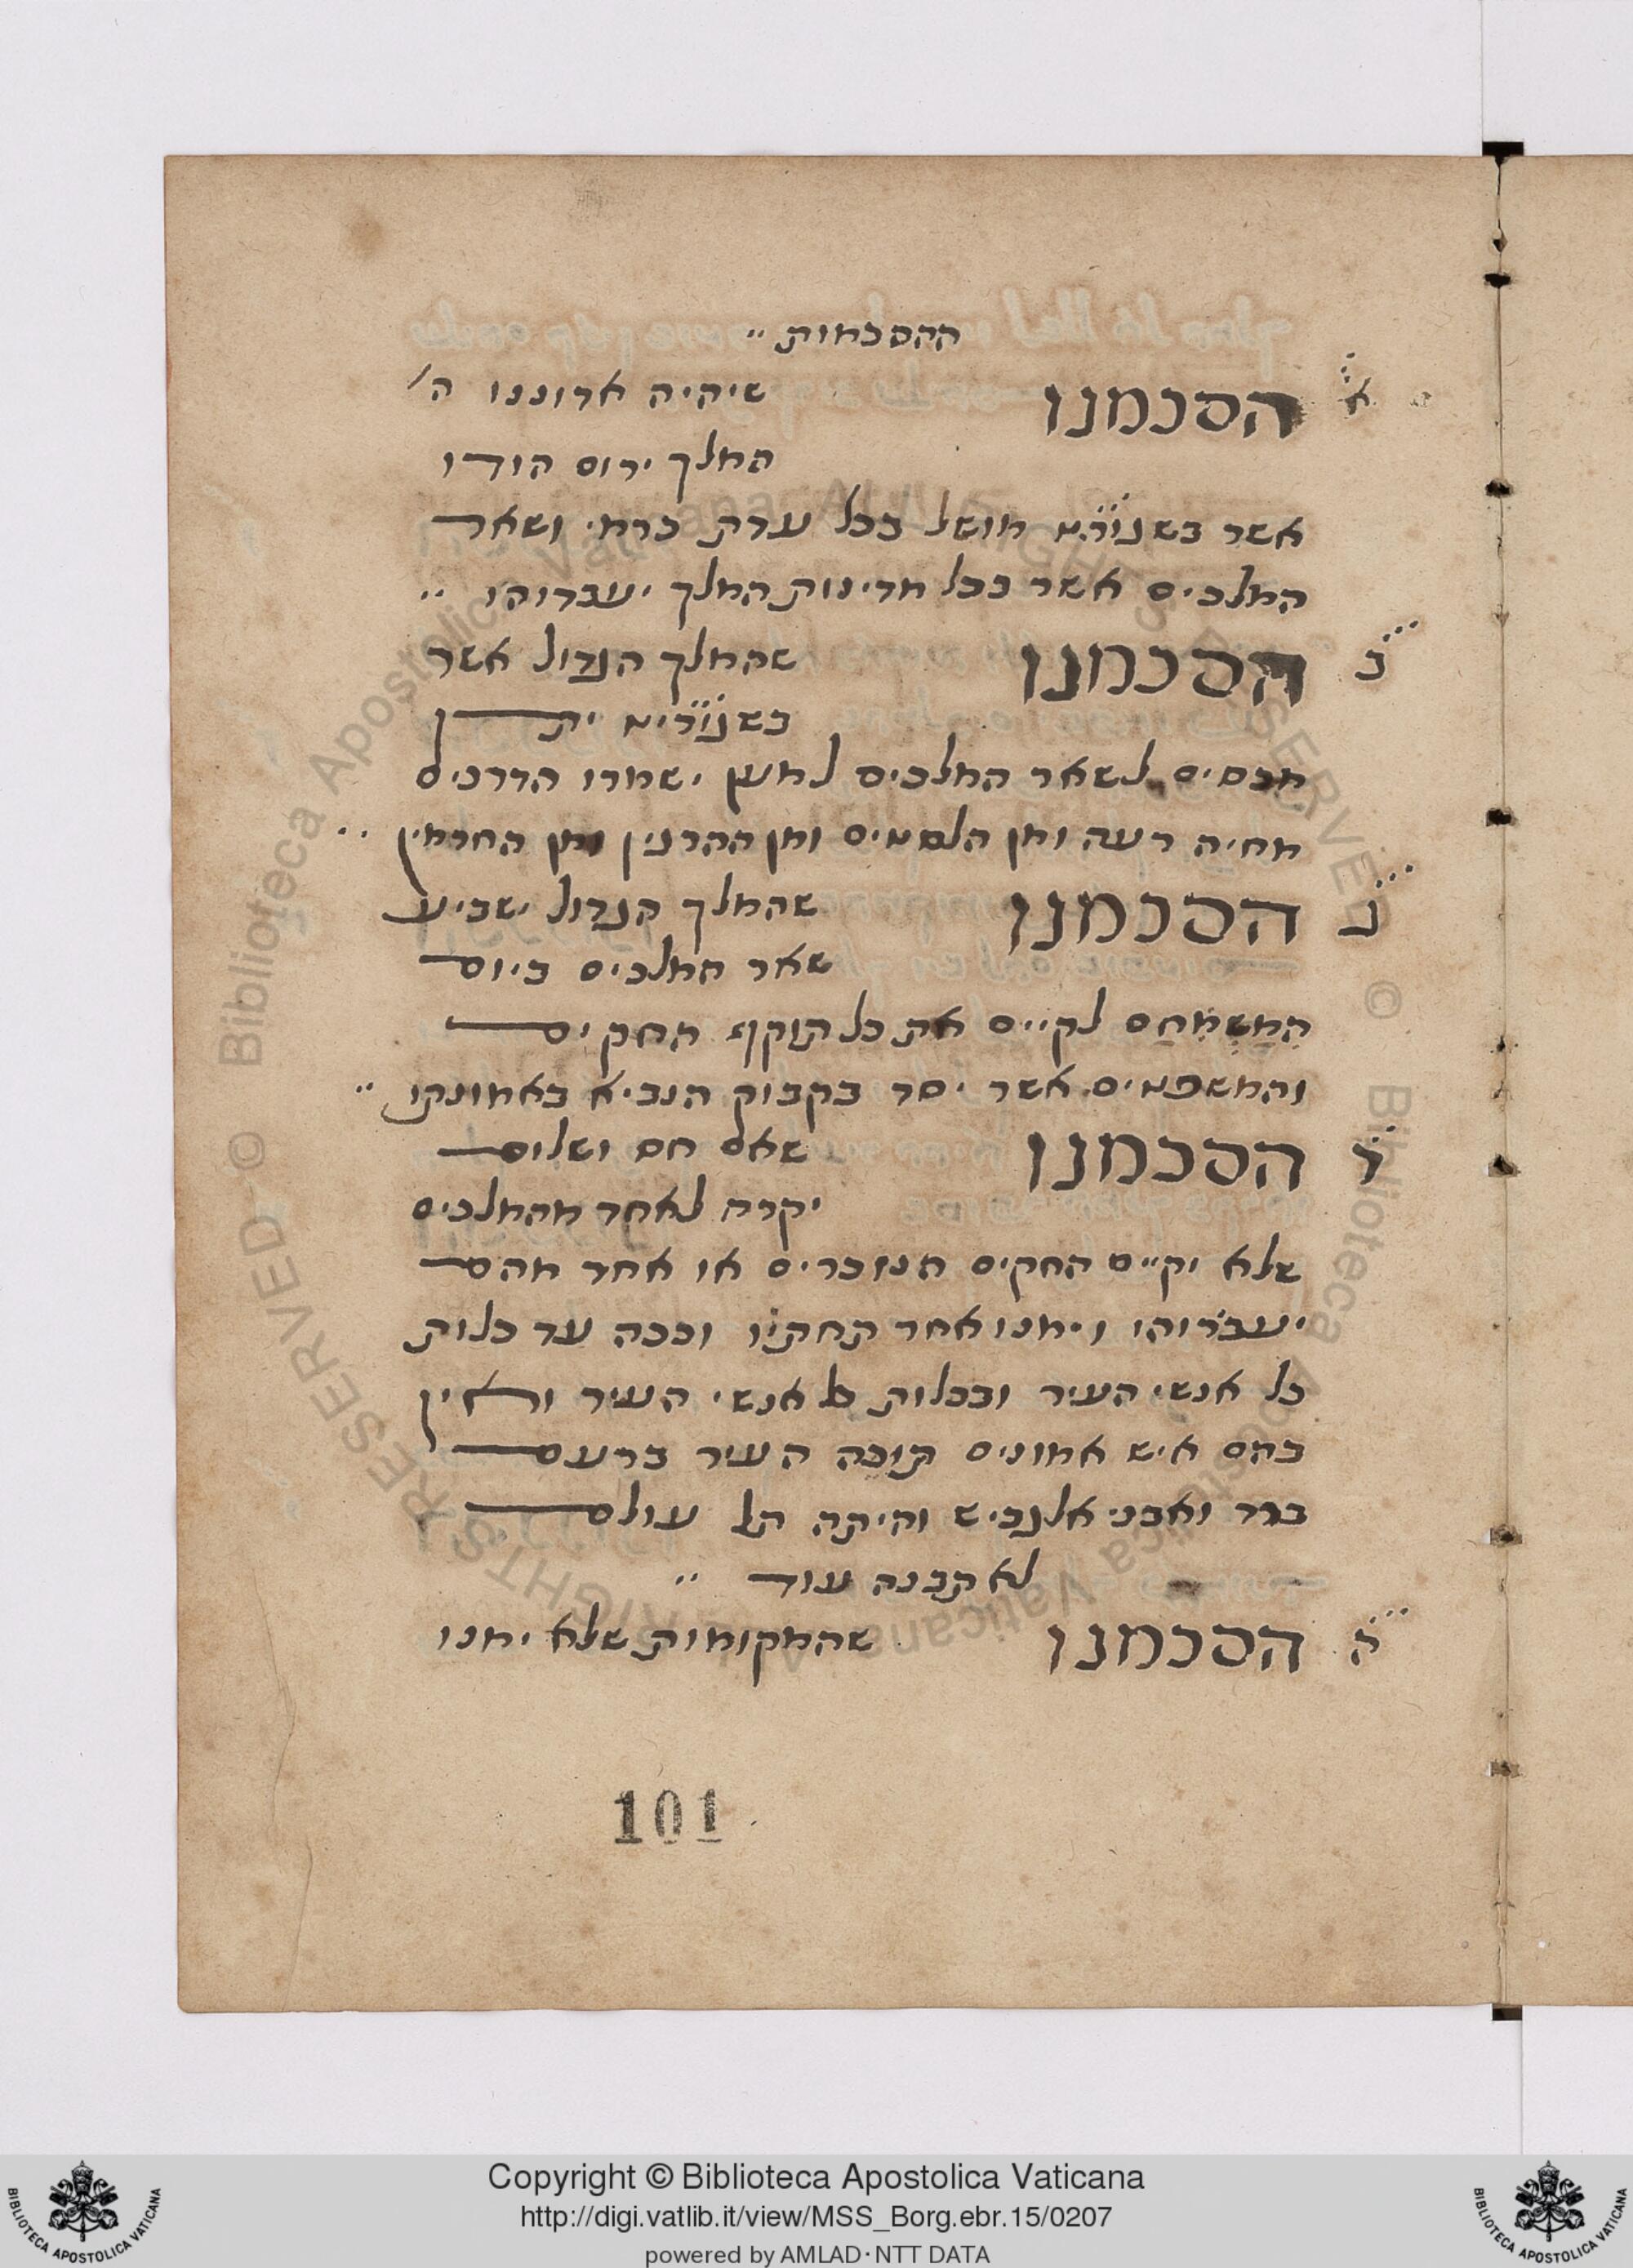 ההסכמות
א הסכמנו שיהיה אדוננו ה'
המלך ירום הודו
אשר מושל בכל ערק כרמי ושאר
המלכים אשר בכל מדינות המלך יעבדוהו
ב הסכמנו שהמלך הגדול אשר
יתן
מכסים לשאר המלכים למען ישמרו הדרכים
מחיה רעה ומן הלסטים ומן ההרגין ומן
ג הסכמנו שהמלך הגדול ישביע
שאר המלכים ביום
לקיים את כל תוקף החקים
והמשפטים אשר יסד בקבוק הנביא באמונתו
ד הסכמנו שאם חס ושלום
יקרה לאחד מהמלכים
שלא יקיים החקים הנזכרים או אחד מהם
יעבירוהו וימנו אחד תחתיו וככה עד כלות
כל אנשי העיר ובכלות כל אנשי העיר ואין
בהם איש אמונים תוכה העיר ברעם
ברד ואבני אלגביש והיתה תל עולם
לא תבנה עוד
ה הסכמנו שהמקומות שלא ימנו
101
Copyright © Biblioteca Apostolica Vaticana
http://digi.vatlib.it/view/MSS_Borg.ebr.15/0207
powered by AMLAD · NTT DATA
BIBLIOTECA APOSTOLICA VATICANA
BIBLIOTECA APOSTOLICA VATICANA